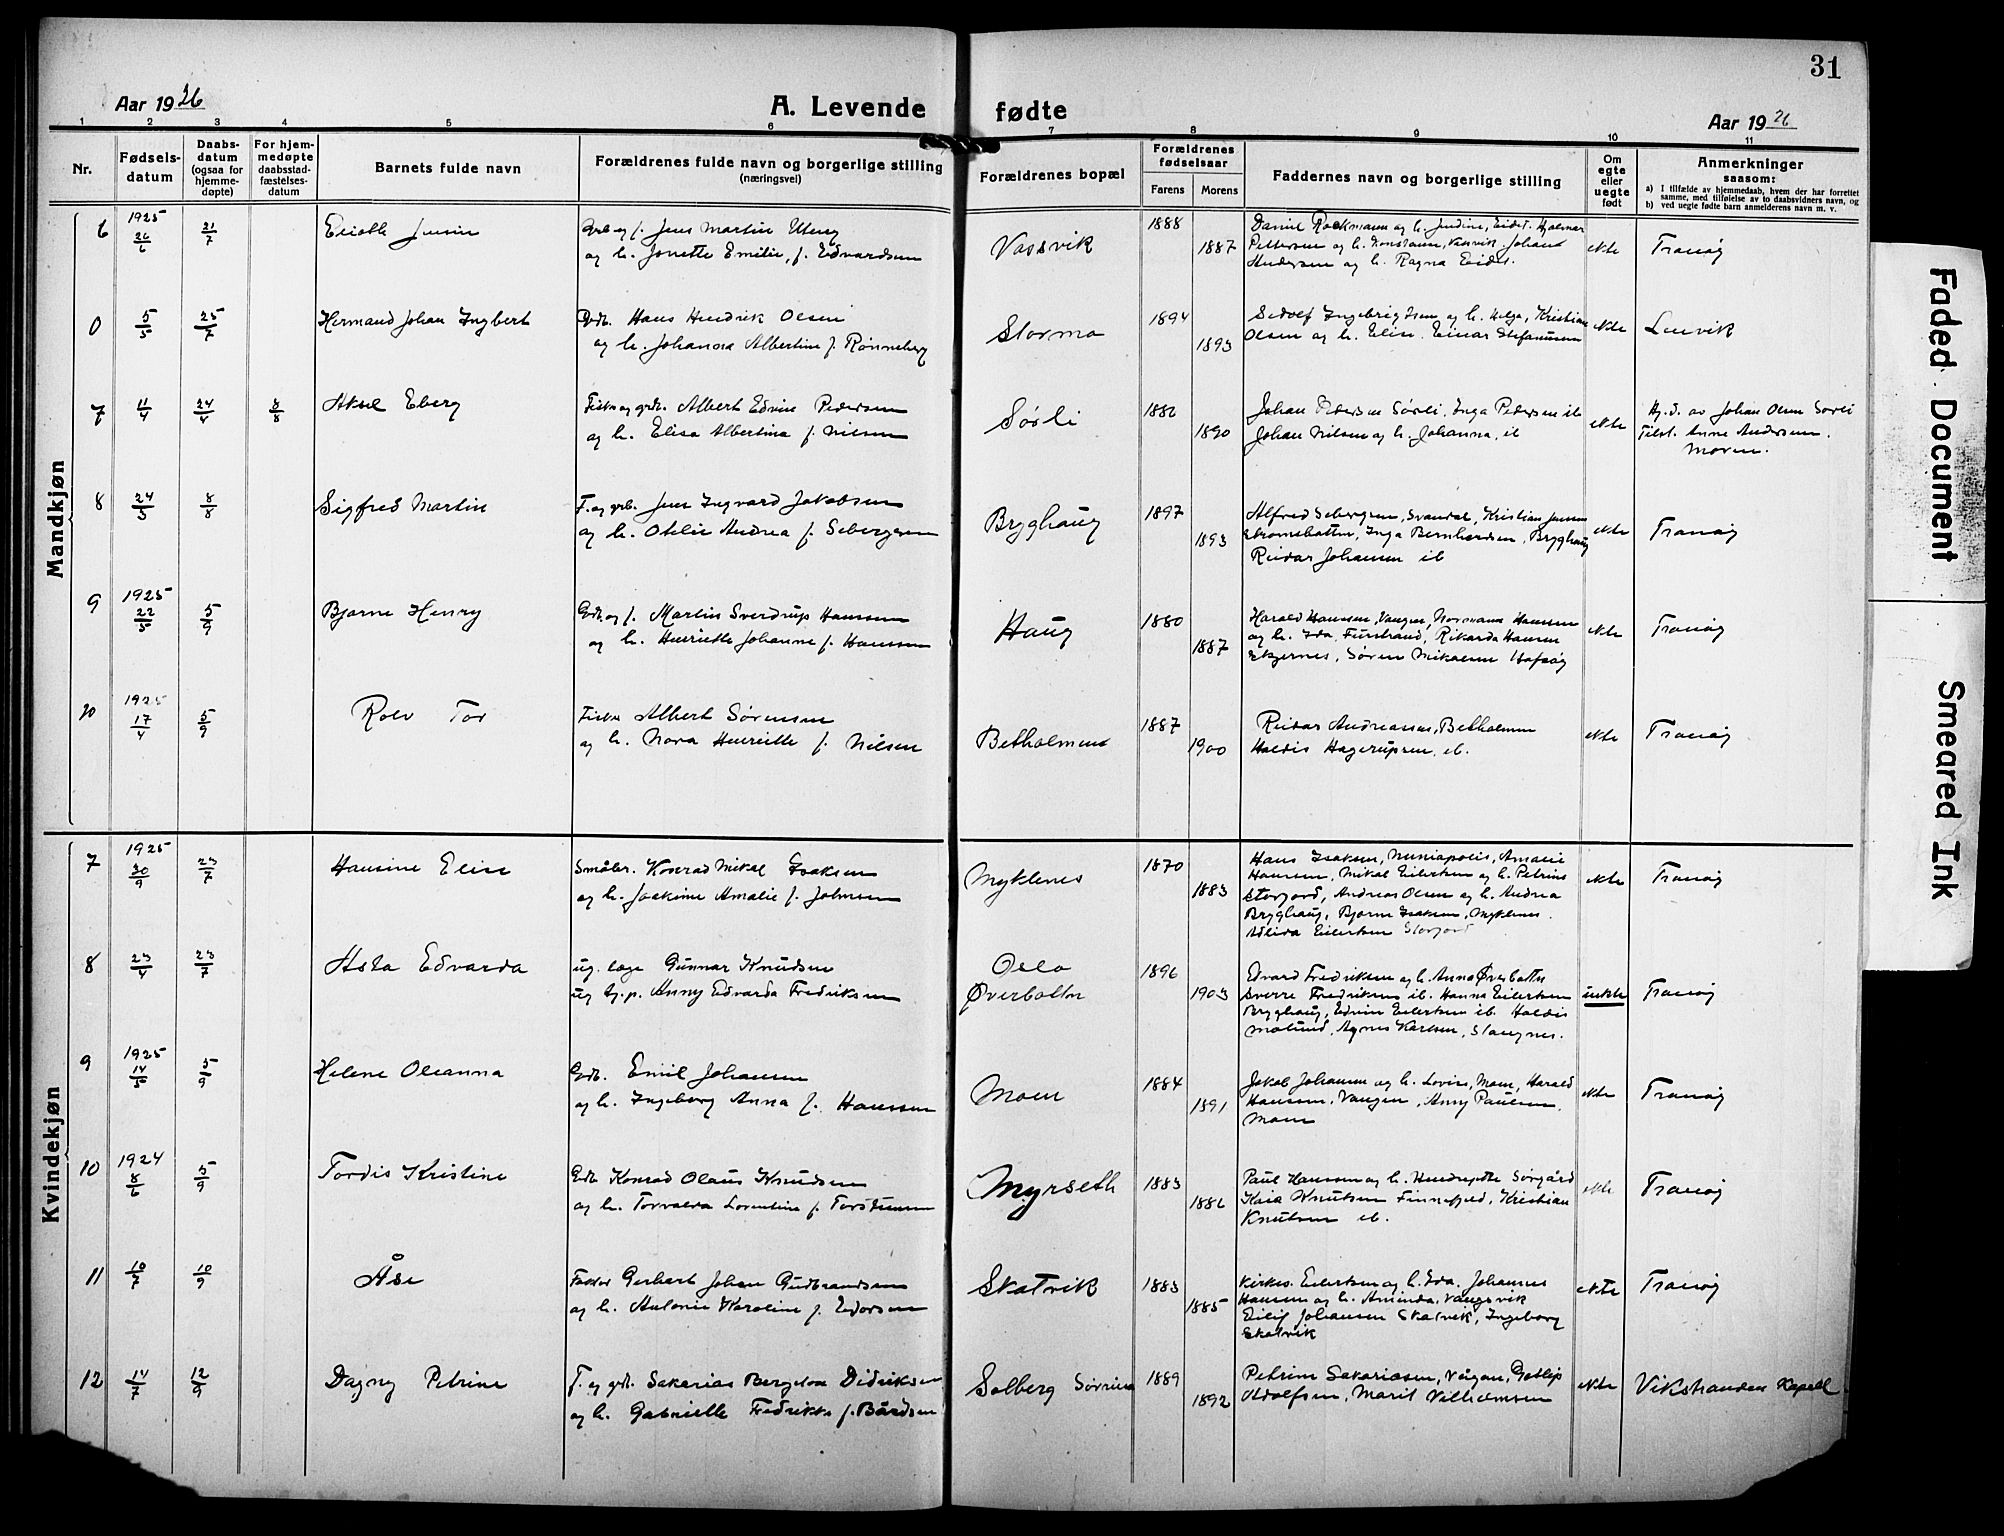 31
Aar 1926
A. Levende fødte
Aar 1926
1 2 3 4 5 6 7 8 9 10 11
Nr.
Fødsels-
datum
Daabs-
datum
(ogsaa for
hjemme-
døpte)
For hjem-
medøpte
daabsstad-
fæstelses-
datum
Barnets fulde navn
Forældrenes fulde navn og borgerlige stilling
(næringsvei)
Forældrenes bopæl
Forældrenes
fødselsaar
Farens Morens
Faddernes navn og borgerlige stilling
Om
egte
eller
uegte
født
Anmerkninger
saasom:
a) I tilfælde av hjemmedaab, hvem der har forrettet
samme, med tilføielse av to daabsvidners navn, og
b) ved uegte fødte barn anmelderens navn m. v.
Mandkjøn
6 1925 26/6 21/7 Jensin
Jens Martin
og h. Jonette Emilie, f. Edvardsen
Vassvik 1888 1887
Daniel Rockmann og h. Jendine, Eidet. Hjalmar
Pettersen og h. Konstanse, Vasvik. Johan
Andersen og h. Ragna Eidet.
ekte Tranøy
0 5/5 25/7 Hermand Johan Ingbert
Grdb. Hans Hendrik Olsen
og h. Johanna Albertine f. Rønneberg
Slorma 1894 1893
Sedolf Ingebrigtsen og h. Helga, Kristian
Olsen og h. Elise. Einar Stefanussen
ekte Lenvik
7 11/4 24/4 8/8 Aksel Eberg
Fisk. og grdb. Albert Edvin Pedersen
og h. Elisa Albertina f. Nilsen
Sørli 1886 1890
Johan Pedersen Sørli, Inga Pedersen ib
Johan Nilsen og h. Johanna, ib
ekte
Hj. d. av Johan Olsen Sørli
Tilst. Anne Andersen.
Moren.
8 24/5 8/8 Sigfred Martin
F. og grb. Jens Ingvard Jakobsen
og h. Otelie Andrea f. Sebergsen
Bryghaug 1897 1893
Alfred Sebergsen, Svandal, Kristian Jensen
Strømsbotten, Inga Bernhardsen, Bryghaug
Reidar Johansen ib
ekte Tranøy
9 1925 22/5 5/9 Bjarne Henry
Grdb. og f. Martin Sverdrup Hansen
og h. Henriette Johanne f. Hansen
Haug 1880 1887
Harald Hansen, Vangen, Normann Hansen
og h. Ida, Furstrand, Rikarda Hansen
Skjernes, Søren Mikalsen Hofsøy
ekte Tranøy
10 1925 17/4 5/9 Rolv Tor
Fisker Albert Sørensen
og h. Nora Henriette f. Nilsen
Betholmene 1887 1900
Reidar Andreassen, Betholmen
Haldis Hagerupsen, ib.
ekte Tranøy
Kvindekjøn
7 1925 30/9 23/7 Hansine Elise
Småbr. Konrad Mikal Isaksen
og h. Joakime Amalie f. Johnsen
Myklenes 1870 1883
Hans Isaksen, Miniapolis, Amalie
Hansen, Mikal Eilertsen og h. Petrine
Storjord, Andreas Olsen og h. Andrea
Bryghaug, Bjarne Isaksen, Myklenes.
Adlida Eilertsen Storjord
ekte Tranøy
8 23/4 23/7 Asta Edvarda
ug. læge Gunnar Knudsen
ug tj.p. Anny Edvarda Fredriksen
Oslo
Øverbotten 1896 1903
Edvard Fredriksen og h. Anna Øverbotten
Sverre Fredriksen ib. Hanna Eilertsen
Bryghaug, Edvin Eilertsen ib. Haldis
Moland, Agnes Karlsen, Stangnes.
uekte Tranøy
9 1925 14/5 5/9 Helene Oleanna
Grdb. Emil Johansen
og h. Ingeborg Anna f. Hanssen
Moen 1884 1891
Jakob Johansen og h. Lovise, Moen, Harald
Hansen, Vangen, Anny Paulsen.
Moen
ekte Tranøy
10 1924 8/6 5/9 Tordis Kristine
Grdb. Konrad Olaus Knudsen
og h. Torvalda Lorentine f. Torstensen
Myrseth 1883 1886
Paul Hansen og h. Sørgård
Kaia Knutsen Finnefjeld, Kristian
Knutsen ib.
ekte Tranøy
11 10/7 10/9 Åse
Faktor Gerhart Johan Gudbrandsen
og h. Antonie Karoline f. Eidorsen
Skatvik 1883 1885
Kirkes. Eilertsen og h. Ida. Johannes
Hansen og h. Aminda, Vangsvik
Eilif Johansen Skatvik, Ingeborg
Skatvik
ekte Tranøy
12 14/7 12/9 Dagny Petrine
F. og grdb. Sakarias Bergeton Didriksen
og h. Gabrielle Fredrikke f. Bårdsen
Solberg Sørreisa 1889 1892
Petrine Sakariasen, Vågan, Gotlip
Adolfsen, Marit Vilhelmsen
ekte Vikstranden Kapell
Faded Document
Smeared Ink